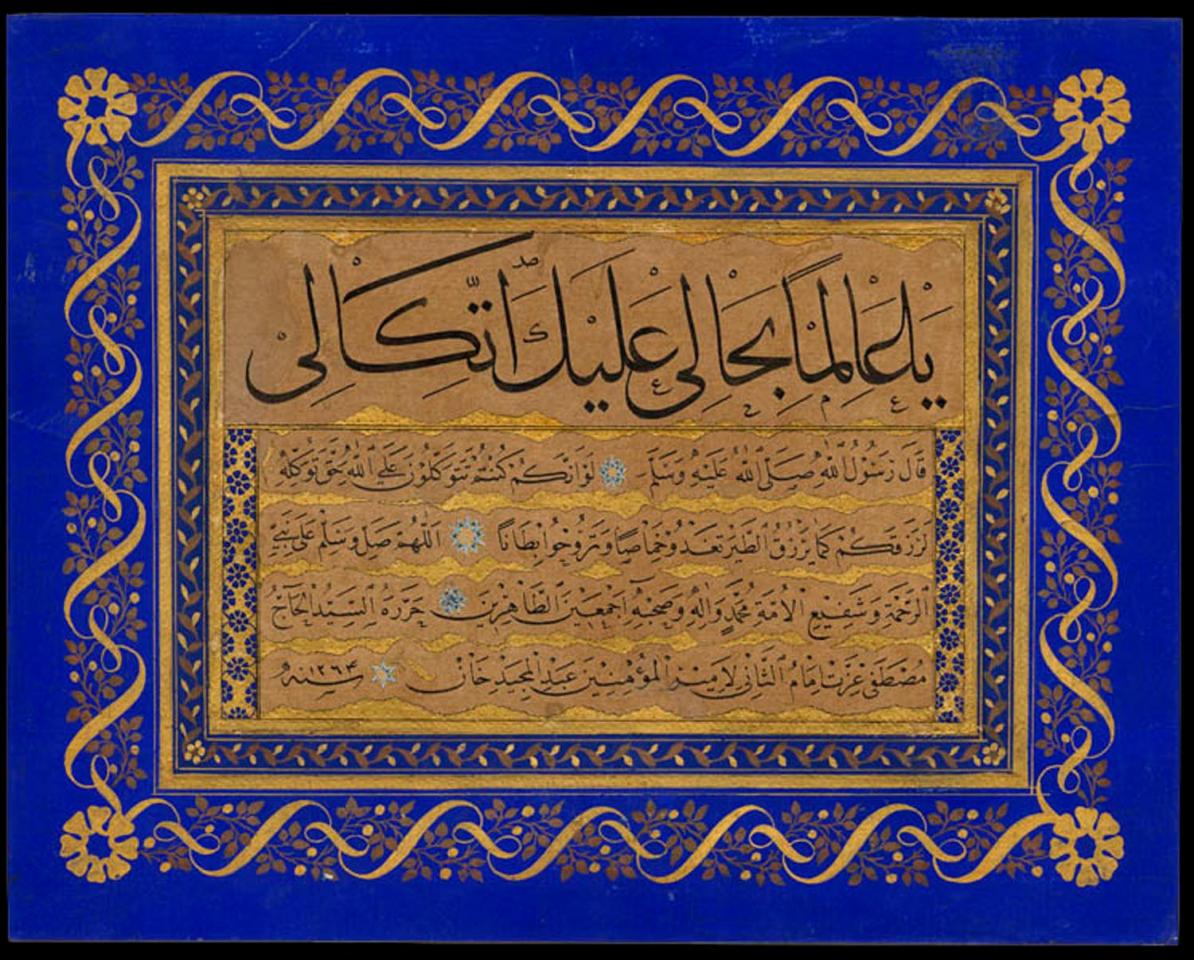 يا عالمًا بحالي عليك اتّكالي
قال رسول الله صلى الله عليه وسلم لو انكم كنتم تتوكلون على الله حق توكله
لرزقكم كما يرزق الطير تغدو خماصا وتروحوا بطانا اللهم صل وسلم على نبي
الرحمة وشفيع الامة محمد واله وصحبه اجمعين الطاهرين حرره السيد الحاج
مصطفى عزت امام الثاني لامير المؤمنين عبد المجيد خان سنه ١٢٦٤